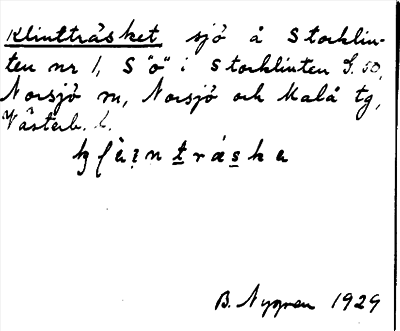 Klintträsket sjö å Storklin-
ten nr 1, S "ö" i Storklinten S. 50,
Norsjö sn, Norsjö och Malå tg,
Västerb. l.
B. Nygren 1929